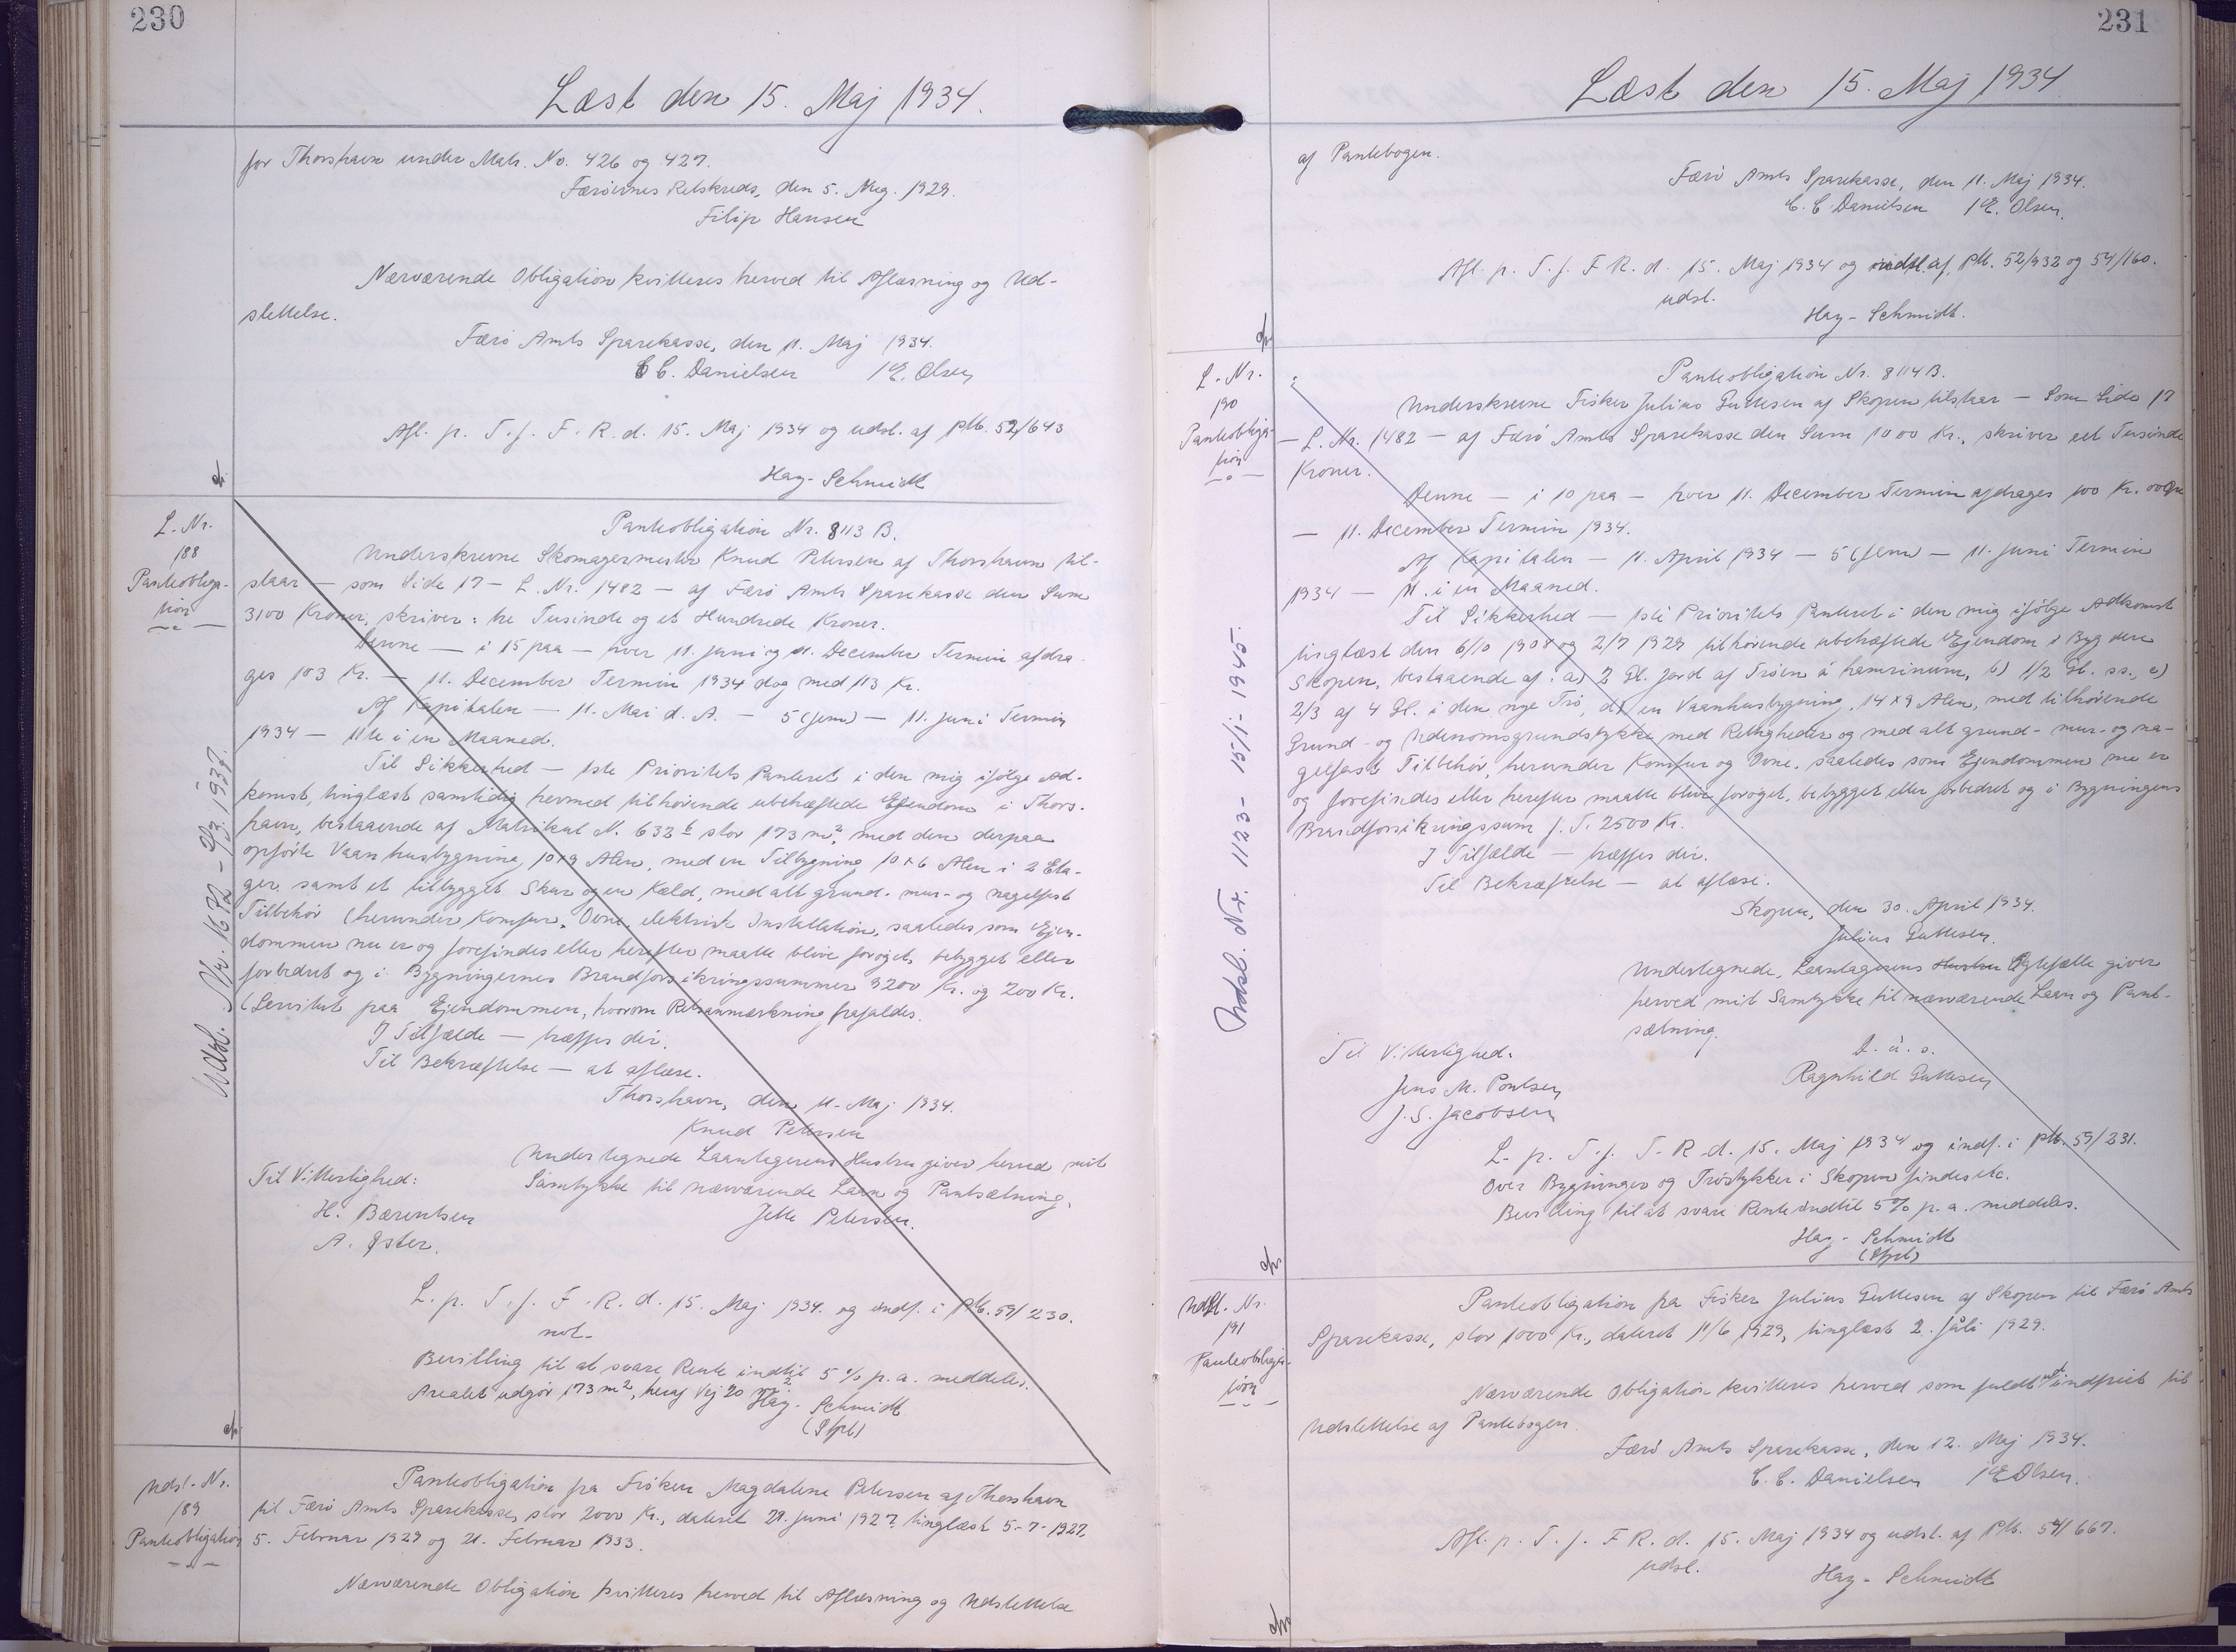 230
Læst den 15. Maj 1934.
for Thorshavn under Matr. No. 426 og 427.
Færøernes Retskreds, den 5. Aug. 1929.
Filip Hansen
Nærværende Obligation kvitteres herved til Aflæsning og Ud-
slettelse.
Færø Amts Sparekasse, den 11. Maj 1934.
C C. Danielsen / E. Olsen
Afl. p. T. f. F. R. d. 15. Maj 1934 og udsl. af Ptb. 52/643
Hay-Schmidt
L. Nr.
188
Pantobliga-
tion
Panteobligation Nr. 8113 B.
Underskrevne Skomagermester Knud Petersen af Thorshavn til-
staar — som Side 17 - L. Nr. 1482 — af Færø Amts Sparekasse den Sum
3100 Kroner, skriver: tre Tusinde og et Hundrede Kroner.
Denne — i 15 paa — hver 11. Juni og 11. December Termin afdra-
ges 103 Kr. — 11. December Termin 1934 dog med 113 Kr.
Af Kapitalen — 11. Mai d. A. — 5 (fem) — 11. Juni Termin
1934 — 11te i en Maaned.
Til Sikkerhed — 1ste Prioritets Panteret i den mig ifølge Ad-
komst, tinglæst samtidig hermed tilhørende ubehæftede Ejendom i Thors-
havn, bestaaende af Matrikul N. 632 b stor 173 m², med den derpaa
opførte Vaanhusbygning 10x9 Alen, med en Tilbygning 10x6 Alen i 2 Eta-
ger, samt et tilbygget Skur og en Kæld, med alt grund- mur- og nagelfast
Tilbehør (herunder Komfur, Ovne, elektrisk Installation, saaledes som Ejen-
dommen nu er og forefindes eller herefter maatte blive forøget, bebygget eller
forbedret og i Bygningernes Brandforsikringssummer 3200 Kr. og 200 Kr.
(Servitut paa Ejendommen, hvorom Retsanmærkning frafaldes.
I Tilfælde — træffes der.
Til Bekræftelse — at aflæse.
Thorshavn, den 11. Maj 1934.
Knud Petersen
Undertegnede Laantagerens Hustru giver herved mit
Samtykke til nærværende Laan og Pantsætning.
Jette Petersen.
Til Vitterlighed:
H. Bærentsen
A.
L. p. T. f. F. R. d. 15. Maj 1934. og indf. i Ptb. 59/230.
not-
Bevilling til at svare Rente indtil 5 % p. a. meddeles.
Arealet udgør 173 m², heraf Vej 20 m²
Hay-Schmidt
Udsl. Nr.
189
Panteobligation
Panteobligation fra Frøken Magdalene Petersen af Thorshavn
til Færø Amts Sparekasse, stor 2000 Kr., dateret 29. Juni 1927, tinglæst 5-7-1927,
5. Februar 1929 og 21. Februar 1933.
Nærværende Obligation kvitteres herved til Aflæsning og Udslettelse
231
Læst den 15. Maj 1934
af Pantebogen.
Færø Amts Sparekasse, den 11. Maj 1934.
C. C Danielsen / E. Olsen.
Afl. p. T. f. F R. d. 15. Maj 1934 og af Ptb. 52/932 og 54/160.
udsl.
Hay-Schmidt.
L. Nr.
190
Panteobliga-
tion
Panteobligation Nr. 8114 B.
Underskrevne Fisker Julius Guttesen af Skopun tilstaar — som Side 17
— L. Nr. 1482 — af Færø Amts Sparekasse den Sum 1000 Kr., skriver eet Tusinde
Kroner.
Denne — i 10 paa — hver 11. December Termin afdrages 100 Kr. 00 Øre
— 11. December Termin 1934.
Af Kapitalen — 11. April 1934 — 5 (fem) — 11. Juni Termin
1934 — 11. i en Maaned.
Til Sikkerhed — 1ste Prioritets Panteret i den mig ifølge Adkomst
tinglæst den 6/10 1908 og 2/7 1929 tilhørende ubehæftede Ejendom i Bygden
Skopen, bestaaende af: a) 2 Gl. Jord af Trøen á hamrinum, b) 1/2 Gl. ss., c)
2/3 af 4 Gl. i den nye Trø, d) en Vaanhusbygning, 14x9 Alen, med tilhørende
Grund- og Udenomsgrundstykke med Rettigheder og med alt grund- mur- og na-
gelfast Tilbehør, herunder Komfur og Ovne, saaledes som Ejendommen nu er
og forefindes eller herefter maatte blive forøget, bebygget eller forbedret og i Bygningens
Brandforsikringssum f. T. 2500 Kr.
I Tilfælde — træffes der.
Til Bekræftelse — at aflæse.
Skopen, den 30. April 1934.
Julius Guttesen.
Undertegnede, Laantagerens Hustru Ægtefælle giver
herved mit Samtykke til nærværende Laan og Pant-
sætning.
D. u. s.
Ragnhild Guttesen
Til Vitterlighed:
Jens M. Poulsen
J. S. Jacobsen
L. p. T. f. F. R. d. 15. Maj 1934 og indf. i Ptb. 59/231.
Over Bygninger og Trøstykker i Skopun findes etc.
Bevilling til at svare Rente indtil 5 % p. a. meddeles.
Hay-Schmidt
Udsl. Nr.
191
Panteobliga-
tion
Panteobligation fra Fisker Julius Guttesen af Skopen til Færø Amts
Sparekasse, stor 1000 Kr., dateret 11/6 1929, tinglæst 2. Juli 1929.
Nærværende Obligation kvitteres herved som fuldt ud indfriet til
Udslettelse af Pantebogen.
Færø Amts Sparekasse, den 12. Maj 1934.
C. C. Danielsen / E Olsen.
Afl. p. T. f. F R. d. 15. Maj 1934 og udsl. af Ptb. 54/667.
udsl.
Hay-Schmidt
Udsl. Nr. 1123 - 15/1-1945.